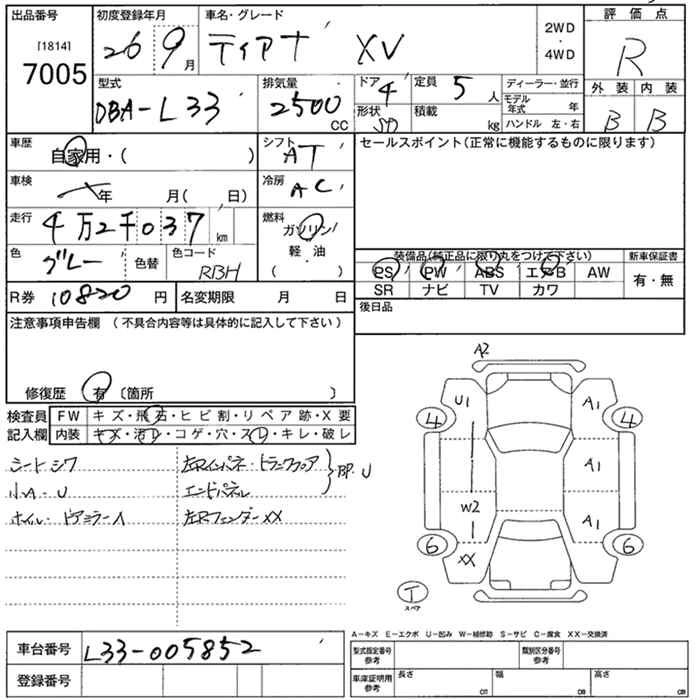 出品番号 初度登録年月 車名・グレード 2WD・4WD 評価点
[1814] 7005 26 9月 ティアナ XV R
型式 排気量 ドア 4 定員 5人 ディーラー・並行 外装 内装
DBA-L33 2500 CC 形状 SD 積載 kg モデル年式 年 B B
ハンドル 左・右
車歴 自家用・( ) シフト AT セールスポイント(正常に機能するものに限ります)
車検 年 月( 日) 冷房 AC
走行 4万2千037 km 燃料 ガソリン 軽・油 ( )
色 グレー 色替 色コード RBH
装備品(純正品に限り丸をつけて下さい) 新車保証書
PS PW ABS エアB AW 有・無
SR ナビ TV カワ
R券 10820 円 名変期限 月 日 後日品
注意事項申告欄 (不具合内容等は具体的に記入して下さい)
修復歴 有 〔箇所 〕
検査員 FW キズ・飛石・ヒビ割・リペア跡・X要
記入欄 内装 キズ・汚レ・コゲ・穴・スレ・キレ・破レ
シートシワ 左Rインパネ・トランクフロア
小A・U エンドパネル BP・U
ホイル・ドアミラーA 左RフェンダーXX
A2
U1 A1
4 4
A1
W2 A1
6 6
XX
T
スペア
A-キズ E-エクボ U-凹み W-補修跡 S-サビ C-腐食 XX-交換済
車台番号 L33-005852
登録番号
型式指定番号 参考 類別区分番号 参考
車庫証明用 参考 長さ cm 幅 cm 高さ cm